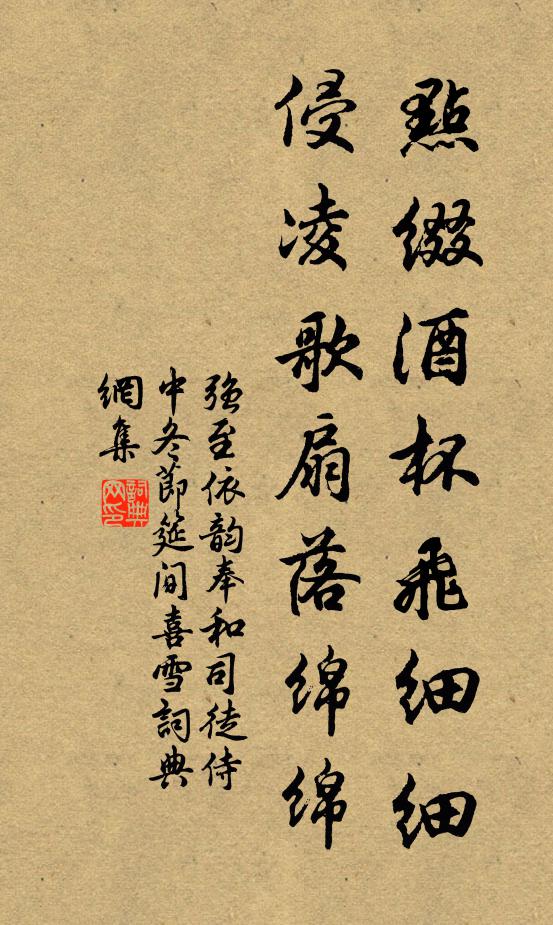 點綴酒杯飛細細
侵凌歌扇落绵绵
强至依韵奉和司徒侍
中冬節筵间喜雪詞典
網集
詞典
网印